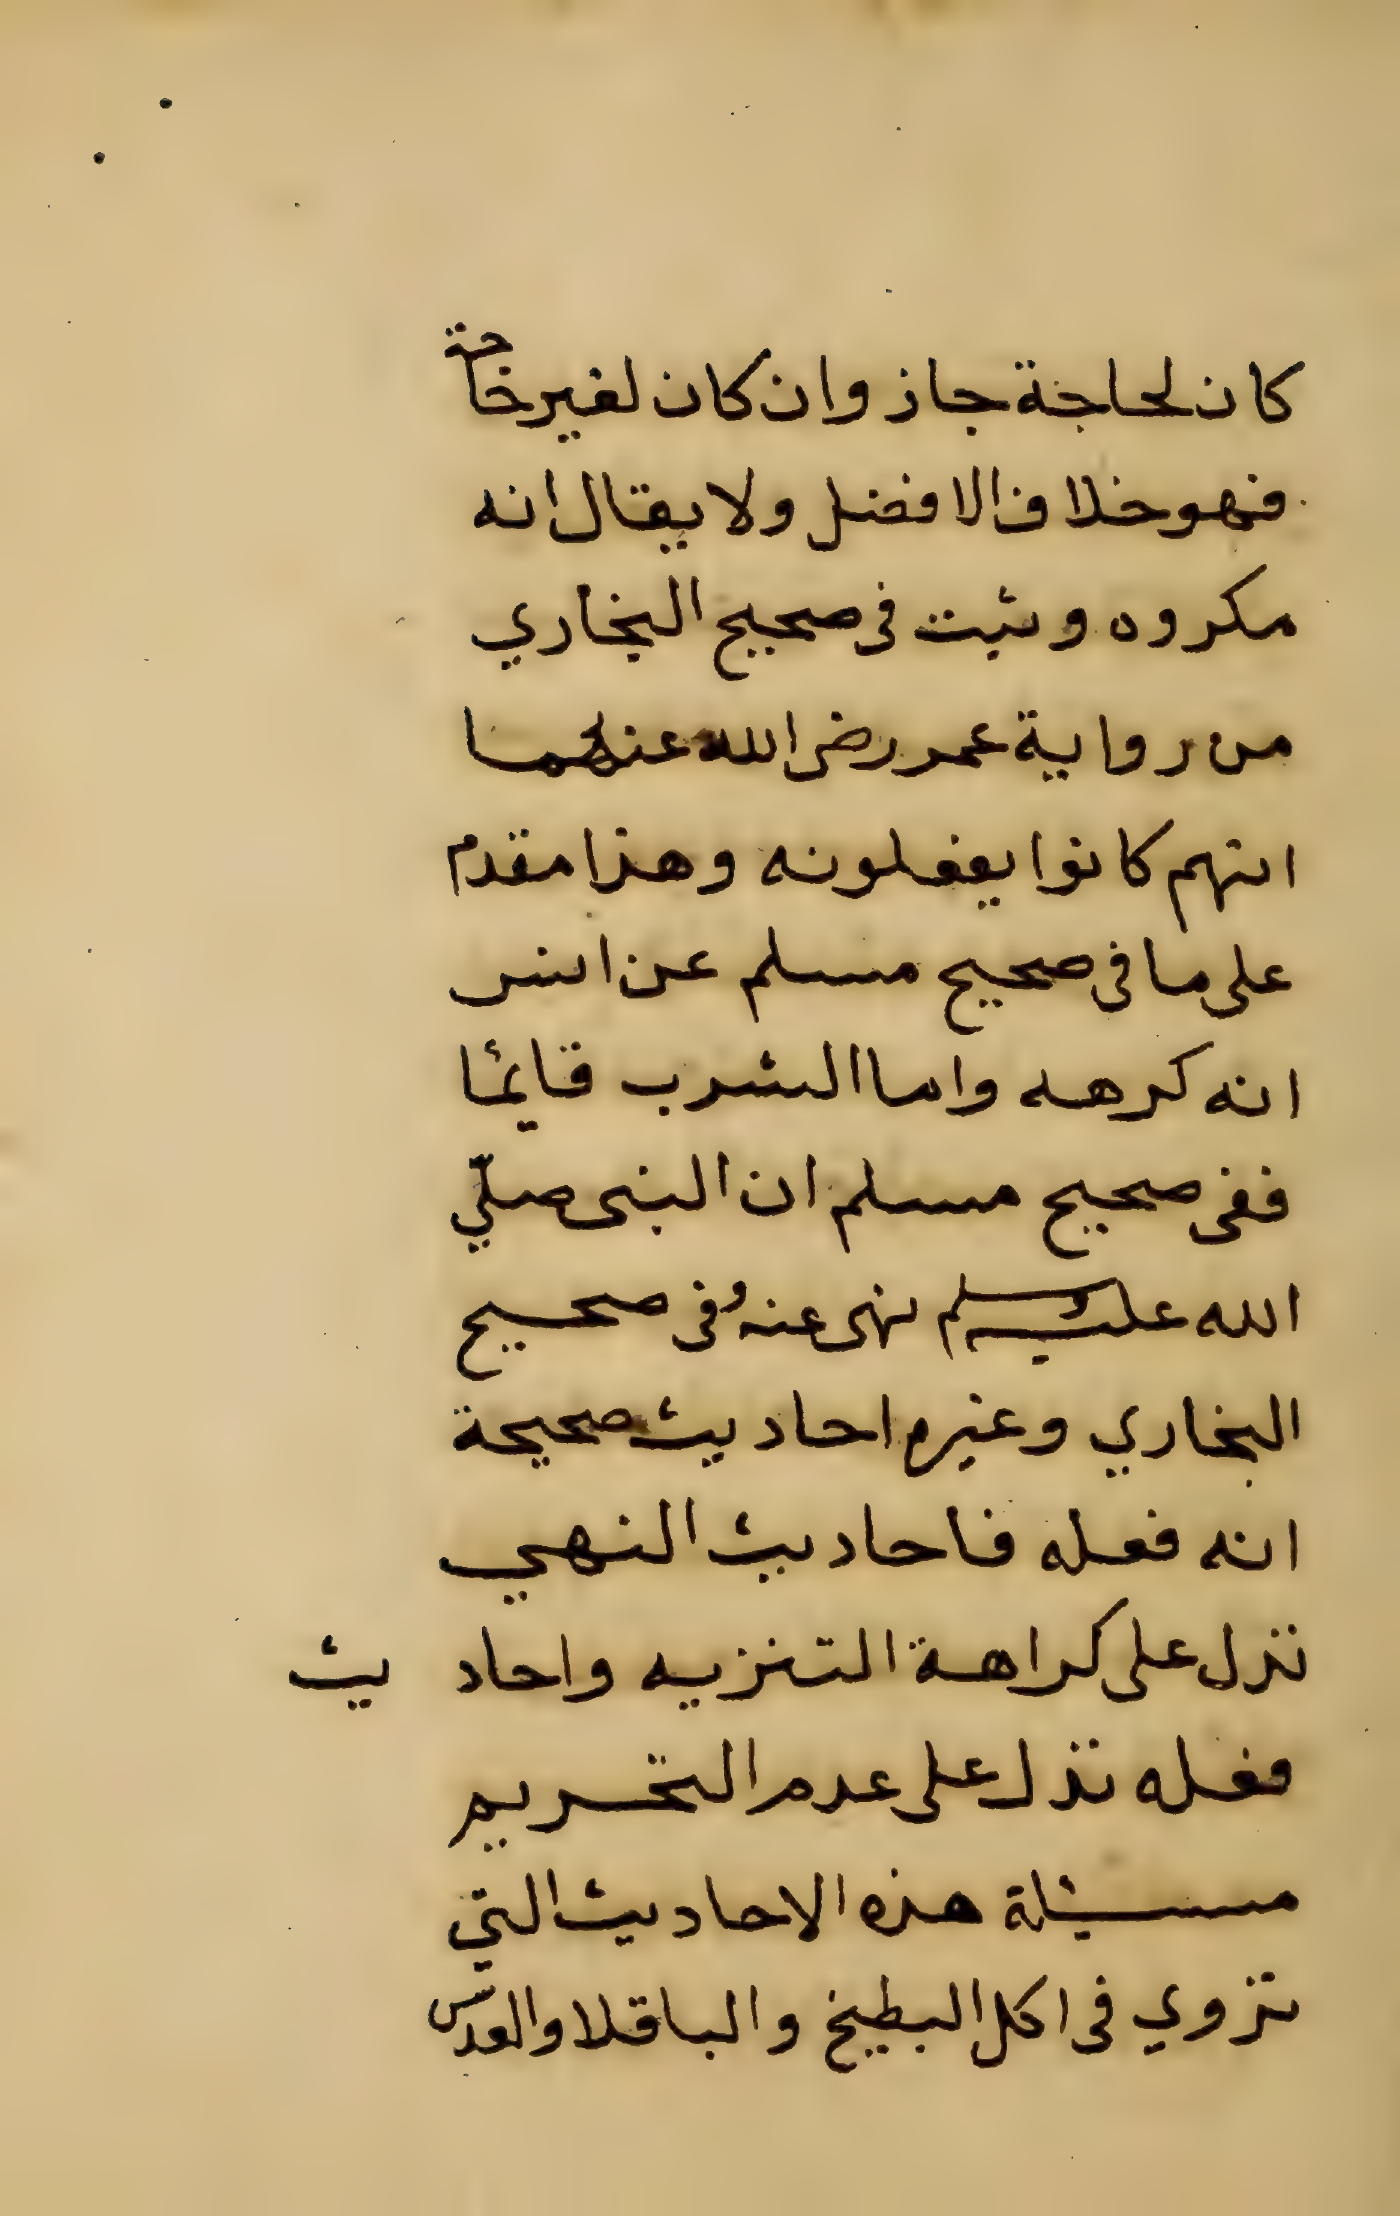 كان لحاجة جاز وان كان لغير حاجة
فهو خلاف الافضل ولا يقال انه
مكروه وثبت فى صحيح البخاري
من رواية عمر رضى الله عنهما
انهم كانوا يفعلونه وهذا مقدم
على ما فى صحيح مسلم عن انس
انه كرهه واما الشرب قايمًا
ففى صحيح مسلم ان النبى صلّي
الله عليه وسلم نهى عنه وفى صحيح
البخاري وغيره احاديث صحيحة
انه فعله فاحاديث النهي
تدل على كراهة التنزيه واحاديث
فعله تدل على عدم التحريم
مسئلة هذه الاحاديث التي
تروي فى اكل البطيخ والباقلا والعدس